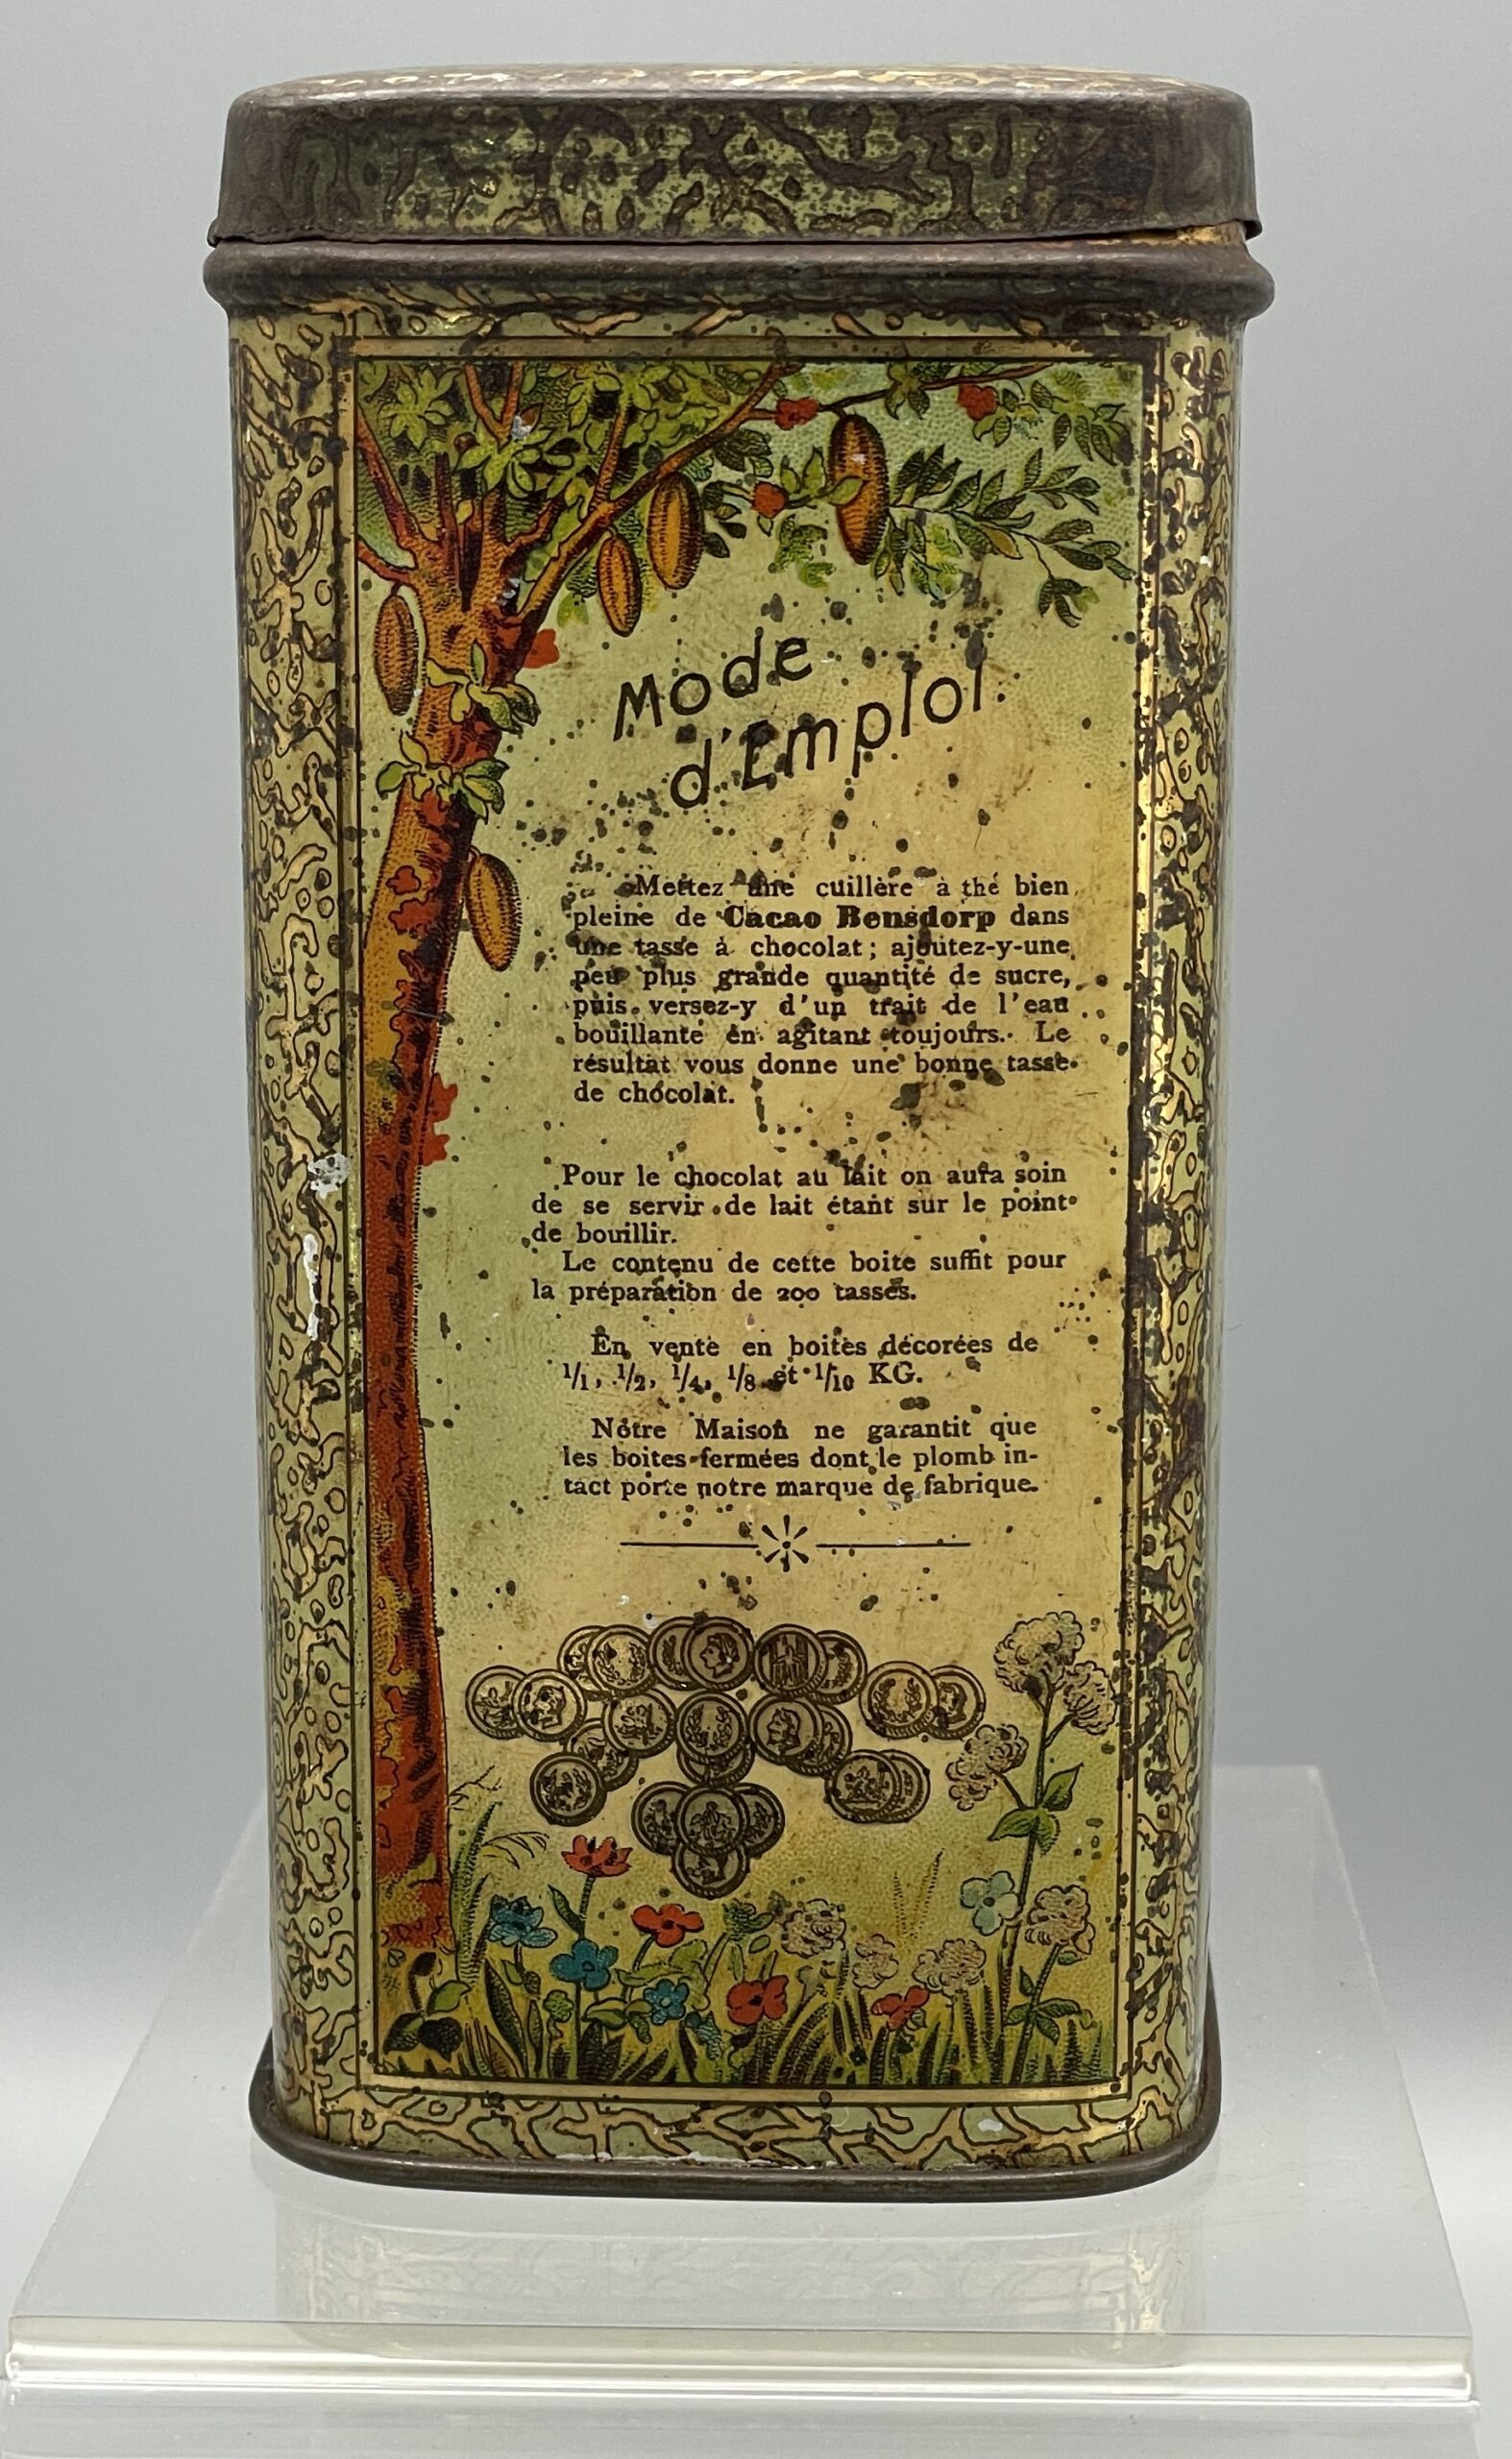 Mode
d'Emploi.
Mettez une cuillère à thé bien
pleine de Cacao Bensdorp dans
une tasse à chocolat; ajoutez-y-une
peu plus grande quantité de sucre,
puis versez-y d'un trait de l'eau
bouillante en agitant toujours. Le
résultat vous donne une bonne tasse
de chocolat.
Pour le chocolat au lait on aura soin
de se servir de lait étant sur le point
de bouillir.
Le contenu de cette boite suffit pour
la préparation de 200 tasses.
En vente en boites décorées de
1/1, 1/2, 1/4, 1/8 et 1/10 KG.
Nôtre Maison ne garantit que
les boites fermées dont le plomb in-
tact porte notre marque de fabrique.